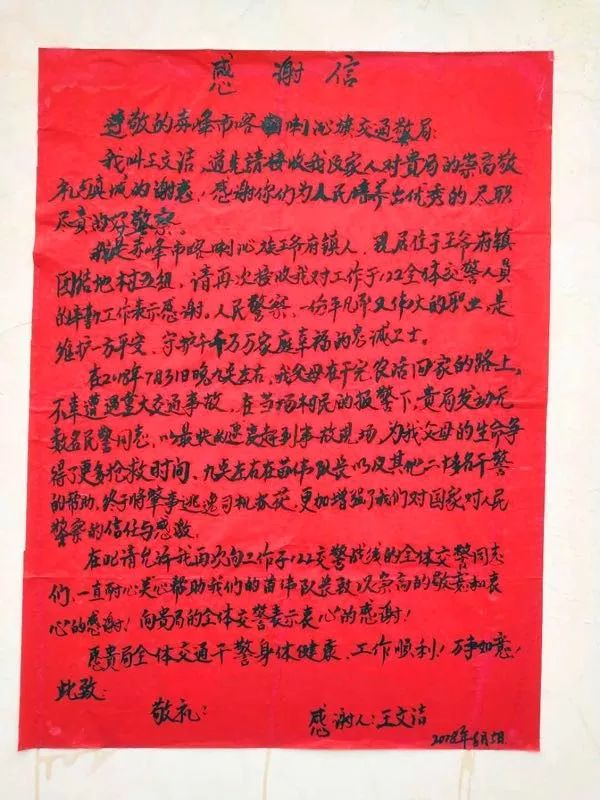 感谢信
尊敬的赤峰市喀喇沁旗交通警局:
我叫王文洁,首先请接收我及家人对贵局的崇高敬
礼与真诚的谢意!感谢你们为人民培养出优秀的尽职
尽责的好警察。
我是赤峰市喀喇沁旗王爷府镇人,现居住于王爷府镇
团结地村五组,请再次接收我对工作于122全体交警人员
的辛勤工作表示感谢。人民警察,一份平凡而又伟大的职业,是
维护一方平安、守护千千万万家庭幸福的忠诚卫士。
在2018年7月31日晚九点左右,我父母在干完农活回家的路上,
不幸遭遇重大交通事故,在当场村民的报警下,贵局发动无
数名民警同志,以最快的速度赶到事故现场,为我父母的生命争
得了更多抢救时间、九点左右在苗伟队长以及其他二十名干警
的帮助,终于将肇事逃逸司机抓获,更加增强了我们对国家对人民
警察的信任与感激。
在此请允许我再次向工作于122交警战线的全体交警同志
们、一直耐心关心帮助我们的苗伟队长致以崇高的敬意和衷
心的感谢!向贵局的全体交警表示衷心的感谢!
愿贵局全体交通干警身体健康、工作顺利!万事如意!
此致:
敬礼:
感谢人:王文洁
2018年8月5日.